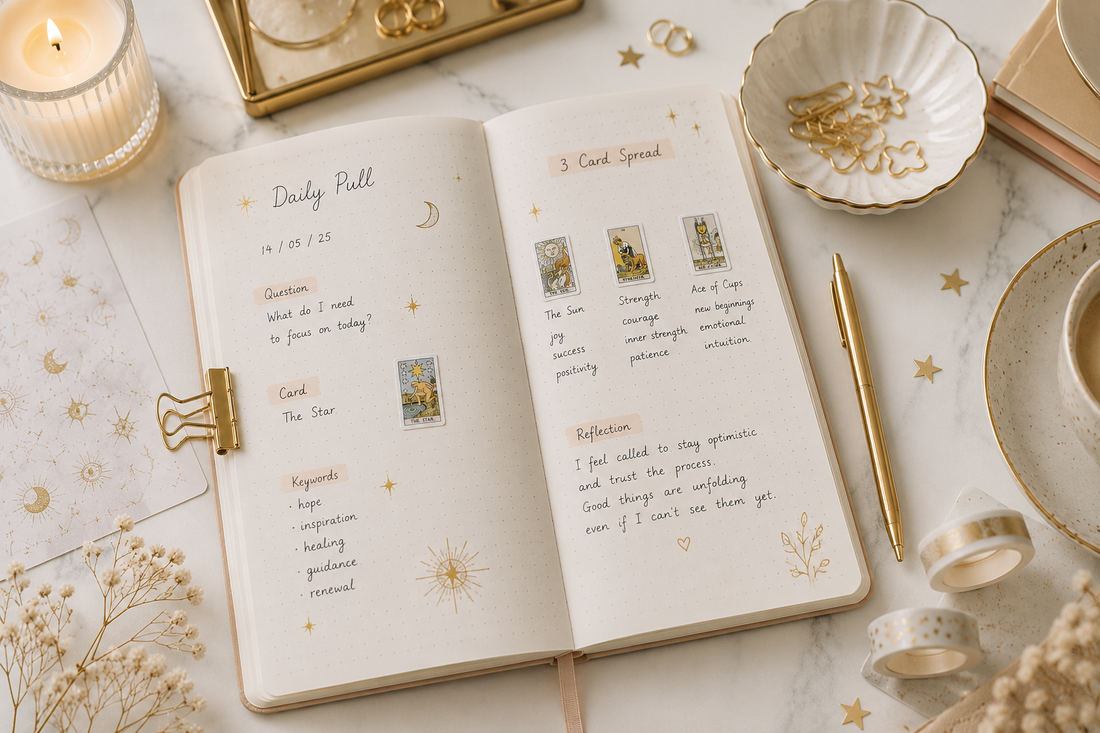 Daily Pull
14 / 05 / 25
Question
What do I need
to focus on today?
Card
The Star
THE STAR.
Keywords
· hope
· inspiration
· healing
· guidance
· renewal
3 Card Spread
The Sun
joy
success
positivity
STRENGTH.
Strength
courage
inner strength
patience
Ace of Cups
new beginnings
emotional
intuition
Reflection
I feel called to stay optimistic
and trust the process.
Good things are unfolding
even if I can't see them yet.